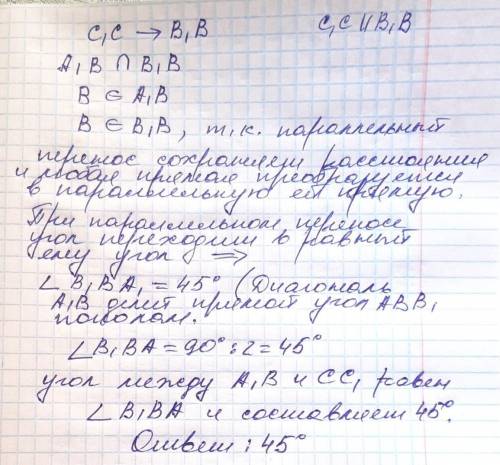 C₁C → B₁B    C₁C ∥ B₁B
A₁B ∩ B₁B
B ∈ A₁B
B ∈ B₁B, т.к. параллельный
перенос сохраняет расстояние
и любая прямая преобразуется
в параллельную ей прямую.
При параллельном переносе
угол переходит в равный
ему угол ⇒
∠ B₁BA₁ = 45° (Диагональ
A₁B делит прямой угол ABB₁
пополам.
∠B₁BA = 90° : 2 = 45°
угол между A₁B и CC₁ равен
∠B₁BA и составляет 45°.
Ответ: 45°